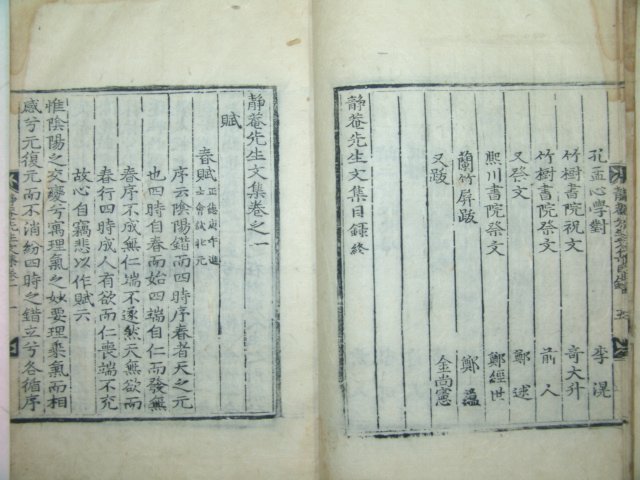 孔孟心學對 李滉
竹樹書院祝文 奇大升
竹樹書院祭文 前人
又祭文 鄭逑
熙川書院祭文 鄭經世
蘭竹屏跋 鄭蘊
又跋 金尙憲
靜菴先生文集目錄終
靜菴先生文集卷之一
賦
春賦 正德庚午進士會試壯元
序云陰陽錯而四時序春者天之元
也四時自春而始四端自仁而發無
春序不成無仁端不遂然天無欲而
春行四時成人有欲而仁喪端不充
故心自竊悲以作賦云
惟陰陽之交變兮寓理氣之妙要理乘氣而相
感兮元復元而不消紛四時之錯立兮各循序